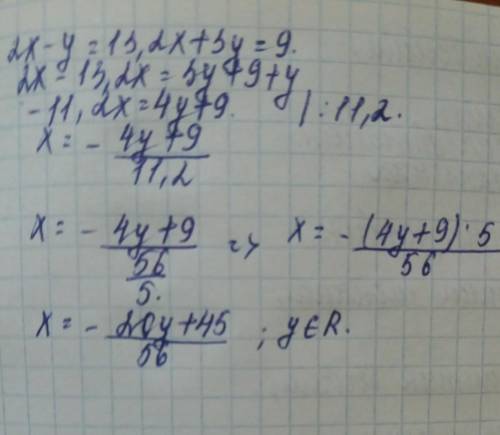 2x-y=13,2x+3y=9.
2x-13,2x=3y+9+y
-11,2x=4y+9. |:11,2.
x=-\frac{4y+9}{11,2}
x=-\frac{4y+9}{\frac{56}{5.}} => x=-\frac{(4y+9)·5}{56}
x=-\frac{20y+45}{56}; y∈R.